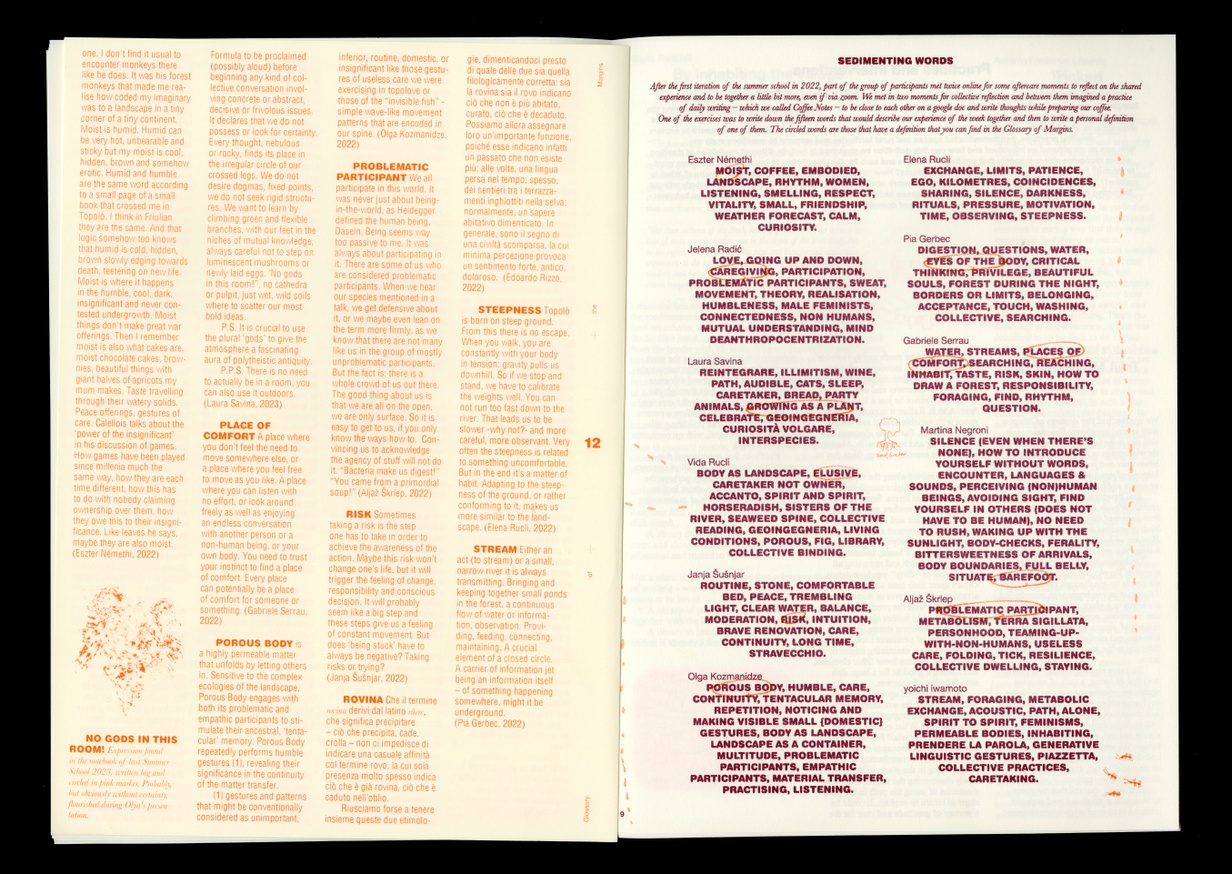 one. I don't find it usual to
encounter monkeys there
like he does. It was his forest
monkeys that made me rea-
lise how coded my imaginary
was to a landscape in a tiny
corner of a tiny continent.
Moist is humid. Humid can
be very hot, unbearable and
sticky but my moist is cool,
hidden, brown and somehow
erotic. Humid and humble
are the same word according
to a small page of a small
book that crossed me in
Topolò. I think in Friulian
they are the same. And that
logic somehow too knows
that humid is cold, hidden,
brown slowly edging towards
death, teetering on new life.
Moist is where it happens
in the humble, cool, dark,
insignificant and never con-
tested undergrowth. Moist
things don't make great war
offerings. Then I remember
moist is also what cakes are,
moist chocolate cakes, brow-
nies, beautiful things with
giant halves of apricots my
mum makes. Taste travelling
through their watery solids.
Peace offerings, gestures of
care. Calellois talks about the
'power of the insignificant'
in his discussion of games.
How games have been played
since millenia much the
same way, how they are each
time different, how this has
to do with nobody claiming
ownership over them, how
they owe this to their insigni-
ficance. Like leaves he says,
maybe they are also moist.
(Eszter Némethi, 2022)
NO GODS IN THIS
ROOM! Expression found
in the notebook of last Summer
School 2023, written big and
circled in pink marker. Probably,
but obviously without certainty,
flourished during Olga's presen-
tation.
Formula to be proclaimed
(possibly aloud) before
beginning any kind of col-
lective conversation invol-
ving concrete or abstract,
decisive or frivolous issues.
It declares that we do not
possess or look for certainty.
Every thought, nebulous
or rocky, finds its place in
the irregular circle of our
crossed legs. We do not
desire dogmas, fixed points,
we do not seek rigid structu-
res. We want to learn by
climbing green and flexible
branches, with our feet in the
niches of mutual knowledge,
always careful not to step on
luminescent mushrooms or
newly laid eggs. 'No gods
in this room!', no cathedra
or pulpit, just wet, wild soils
where to scatter our most
bold ideas.
P.S. It is crucial to use
the plural 'gods' to give the
atmosphere a fascinating
aura of polytheistic antiquity.
P.P.S. There is no need
to actually be in a room, you
can also use it outdoors.
(Laura Savina, 2023)
PLACE OF
COMFORT A place where
you don't feel the need to
move somewhere else, or
a place where you feel free
to move as you like. A place
where you can listen with
no effort, or look around
freely as well as enjoying
an endless conversation
with another person or a
non-human being, or your
own body. You need to trust
your instinct to find a place
of comfort. Every place
can potentially be a place
of comfort for someone or
something. (Gabriele Serrau,
2022)
POROUS BODY is
a highly permeable matter
that unfolds by letting others
in. Sensitive to the complex
ecologies of the landscape,
Porous Body engages with
both its problematic and
empathic participants to sti-
mulate their ancestral, 'tenta-
cular' memory. Porous Body
repeatedly performs humble
gestures (1), revealing their
significance in the continuity
of the matter transfer.
(1) gestures and patterns
that might be conventionally
considered as unimportant,
inferior, routine, domestic, or
insignificant like those gestu-
res of useless care we were
exercising in topolove or
those of the "invisible fish" -
simple wave-like movement
patterns that are encoded in
our spine. (Olga Kozmanidze,
2022)
PROBLEMATIC
PARTICIPANT We all
participate in this world. It
was never just about being-
in-the-world, as Heidegger
defined the human being,
Dasein. Being seems way
too passive to me. It was
always about participating in
it. There are some of us who
are considered problematic
participants. When we hear
our species mentioned in a
talk, we get defensive about
it, or we maybe even lean on
the term more firmly, as we
know that there are not many
like us in the group of mostly
unproblematic participants.
But the fact is: there is a
whole crowd of us out there.
The good thing about us is
that we are all on the open,
we are only surface. So it is
easy to get to us, if you only
know the ways how to. Con-
vincing us to acknowledge
the agency of stuff will not do
it. "Bacteria make us digest!"
"You came from a primordial
soup!" (Aljaž Škrlep, 2022)
RISK Sometimes
taking a risk is the step
one has to take in order to
achieve the awareness of the
action. Maybe this risk won't
change one's life, but it will
trigger the feeling of change,
responsibility and conscious
decision. It will probably
seem like a big step and
these steps give us a feeling
of constant movement. But
does 'being stuck' have to
always be negative? Taking
risks or trying?
(Janja Šušnjar, 2022)
ROVINA Che il termine
rovina derivi dal latino ruere,
che significa precipitare
– ciò che precipita, cade,
crolla – non ci impedisce di
indicare una casuale affinità
col termine rovo, la cui sola
presenza molto spesso indica
ciò che è già rovina, ciò che è
caduto nell'oblio.
Riusciamo forse a tenere
insieme queste due etimolo-
gie, dimenticandoci presto
di quale delle due sia quella
filologicamente corretta: sia
la rovina sia il rovo indicano
ciò che non è più abitato,
curato, ciò che è decaduto.
Possiamo allora assegnare
loro un'importante funzione,
poiché esse indicano infatti
un passato che non esiste
più: alle volte, una lingua
persa nel tempo; spesso,
dei sentieri tra i terrazza-
menti inghiottiti nella selva;
normalmente, un sapere
abitativo dimenticato. In
generale, sono il segno di
una civiltà scomparsa, la cui
minima percezione provoca
un sentimento forte, antico,
doloroso. (Edoardo Rizzo,
2022)
STEEPNESS Topolò
is born on steep ground.
From this there is no escape.
When you walk, you are
constantly with your body
in tension: gravity pulls us
downhill. So if we stop and
stand, we have to calibrate
the weights well. You can
not run too fast down to the
river. That leads us to be
slower -why not?- and more
careful, more observant. Very
often the steepness is related
to something uncomfortable.
But in the end it's a matter of
habit. Adapting to the steep-
ness of the ground, or rather
conforming to it, makes us
more similar to the land-
scape. (Elena Rucli, 2022)
STREAM Either an
act (to stream) or a small,
narrow river it is always
transmitting. Bringing and
keeping together small ponds
in the forest, a continuous
flow of water or informa-
tion, observation. Provi-
ding, feeding, connecting,
maintaining. A crucial
element of a closed circle.
A carrier of information jet
being an information itself
– of something happening
somewhere, might it be
underground.
(Pia Gerbec, 2022)
Margins
the
12
of
Glossary
SEDIMENTING WORDS
After the first iteration of the summer school in 2022, part of the group of participants met twice online for some aftercare moments to reflect on the shared
experience and to be together a little bit more, even if via zoom. We met in two moments for collective reflection and between them imagined a practice
of daily writing – which we called Coffee Notes – to be close to each other on a google doc and write thoughts while preparing our coffee.
One of the exercises was to write down the fifteen words that would describe our experience of the week together and then to write a personal definition
of one of them. The circled words are those that have a definition that you can find in the Glossary of Margins.
Eszter Némethi
MOIST, COFFEE, EMBODIED,
LANDSCAPE, RHYTHM, WOMEN,
LISTENING, SMELLING, RESPECT,
VITALITY, SMALL, FRIENDSHIP,
WEATHER FORECAST, CALM,
CURIOSITY.
Jelena Radić
LOVE, GOING UP AND DOWN,
CAREGIVING, PARTICIPATION,
PROBLEMATIC PARTICIPANTS, SWEAT,
MOVEMENT, THEORY, REALISATION,
HUMBLENESS, MALE FEMINISTS,
CONNECTEDNESS, NON HUMANS,
MUTUAL UNDERSTANDING, MIND
DEANTHROPOCENTRIZATION.
Laura Savina
REINTEGRARE, ILLIMITISM, WINE,
PATH, AUDIBLE, CATS, SLEEP,
CARETAKER, BREAD, PARTY
ANIMALS, GROWING AS A PLANT,
CELEBRATE, GEOINGEGNERIA,
CURIOSITÀ VOLGARE,
INTERSPECIES.
Vida Rucli
BODY AS LANDSCAPE, ELUSIVE,
CARETAKER NOT OWNER,
ACCANTO, SPIRIT AND SPIRIT,
HORSERADISH, SISTERS OF THE
RIVER, SEAWEED SPINE, COLLECTIVE
READING, GEOINGEGNERIA, LIVING
CONDITIONS, POROUS, FIG, LIBRARY,
COLLECTIVE BINDING.
Janja Šušnjar
ROUTINE, STONE, COMFORTABLE
BED, PEACE, TREMBLING
LIGHT, CLEAR WATER, BALANCE,
MODERATION, RISK, INTUITION,
BRAVE RENOVATION, CARE,
CONTINUITY, LONG TIME,
STRAVECCHIO.
Olga Kozmanidze
POROUS BODY, HUMBLE, CARE,
CONTINUITY, TENTACULAR MEMORY,
REPETITION, NOTICING AND
MAKING VISIBLE SMALL (DOMESTIC)
GESTURES, BODY AS LANDSCAPE,
LANDSCAPE AS A CONTAINER,
MULTITUDE, PROBLEMATIC
PARTICIPANTS, EMPATHIC
PARTICIPANTS, MATERIAL TRANSFER,
PRACTISING, LISTENING.
Elena Rucli
EXCHANGE, LIMITS, PATIENCE,
EGO, KILOMETRES, COINCIDENCES,
SHARING, SILENCE, DARKNESS,
RITUALS, PRESSURE, MOTIVATION,
TIME, OBSERVING, STEEPNESS.
Pia Gerbec
DIGESTION, QUESTIONS, WATER,
EYES OF THE BODY, CRITICAL
THINKING, PRIVILEGE, BEAUTIFUL
SOULS, FOREST DURING THE NIGHT,
BORDERS OR LIMITS, BELONGING,
ACCEPTANCE, TOUCH, WASHING,
COLLECTIVE, SEARCHING.
Gabriele Serrau
WATER, STREAMS, PLACES OF
COMFORT, SEARCHING, REACHING,
INHABIT, TASTE, RISK, SKIN, HOW TO
DRAW A FOREST, RESPONSIBILITY,
FORAGING, FIND, RHYTHM,
QUESTION.
Martina Negroni
SILENCE (EVEN WHEN THERE'S
NONE), HOW TO INTRODUCE
YOURSELF WITHOUT WORDS,
ENCOUNTER, LANGUAGES &
SOUNDS, PERCEIVING (NON)HUMAN
BEINGS, AVOIDING SIGHT, FIND
YOURSELF IN OTHERS (DOES NOT
HAVE TO BE HUMAN), NO NEED
TO RUSH, WAKING UP WITH THE
SUNLIGHT, BODY-CHECKS, FERALITY,
BITTERSWEETNESS OF ARRIVALS,
BODY BOUNDARIES, FULL BELLY,
SITUATE, BAREFOOT.
Aljaž Škrlep
PROBLEMATIC PARTICIPANT,
METABOLISM, TERRA SIGILLATA,
PERSONHOOD, TEAMING-UP-
WITH-NON-HUMANS, USELESS
CARE, FOLDING, TICK, RESILIENCE,
COLLECTIVE DWELLING, STAYING.
yoichi iwamoto
STREAM, FORAGING, METABOLIC
EXCHANGE, ACOUSTIC, PATH, ALONE,
SPIRIT TO SPIRIT, FEMINISMS,
PERMEABLE BODIES, INHABITING,
PRENDERE LA PAROLA, GENERATIVE
LINGUISTIC GESTURES, PIAZZETTA,
COLLECTIVE PRACTICES,
CARETAKING.
9